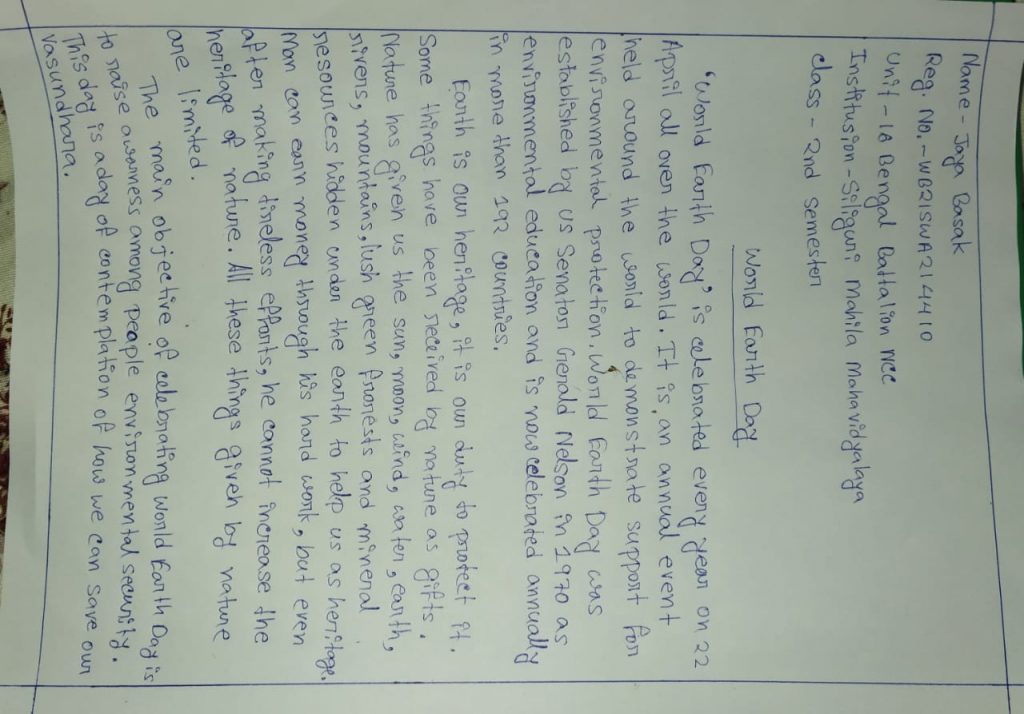 Name - Jaya Basak
Reg. No. - WB21SWA214410
Unit - 16 Bengal Battalion NCC
Institusion - Siliguri Mahila Mahavidyalaya
class - 2nd semester
World Earth Day
'World Earth Day' is celebrated every year on 22
April all over the world. It is an annual event
held around the world to demonstrate support for
environmental protection. World Earth Day was
established by us Senator Gerald Nelson in 1970 as
environmental education and is now celebrated annually
in more than 192 countries.
Earth is our heritage, it is our duty to protect it.
Some things have been received by nature as gifts.
Nature has given us the sun, moon, wind, water, earth,
rivers, mountains, lush green forests and mineral
resources hiden under the earth to help us as heritage.
Man can earn money through his hard work, but even
after making tireless efforts, he cannot increase the
heritage of nature. All these things given by nature
are limited.
The main objective of celebrating world Earth Day is
to raise awarness among people environmental security.
This day is a day of contemplation of how we can save our
vasundhara.